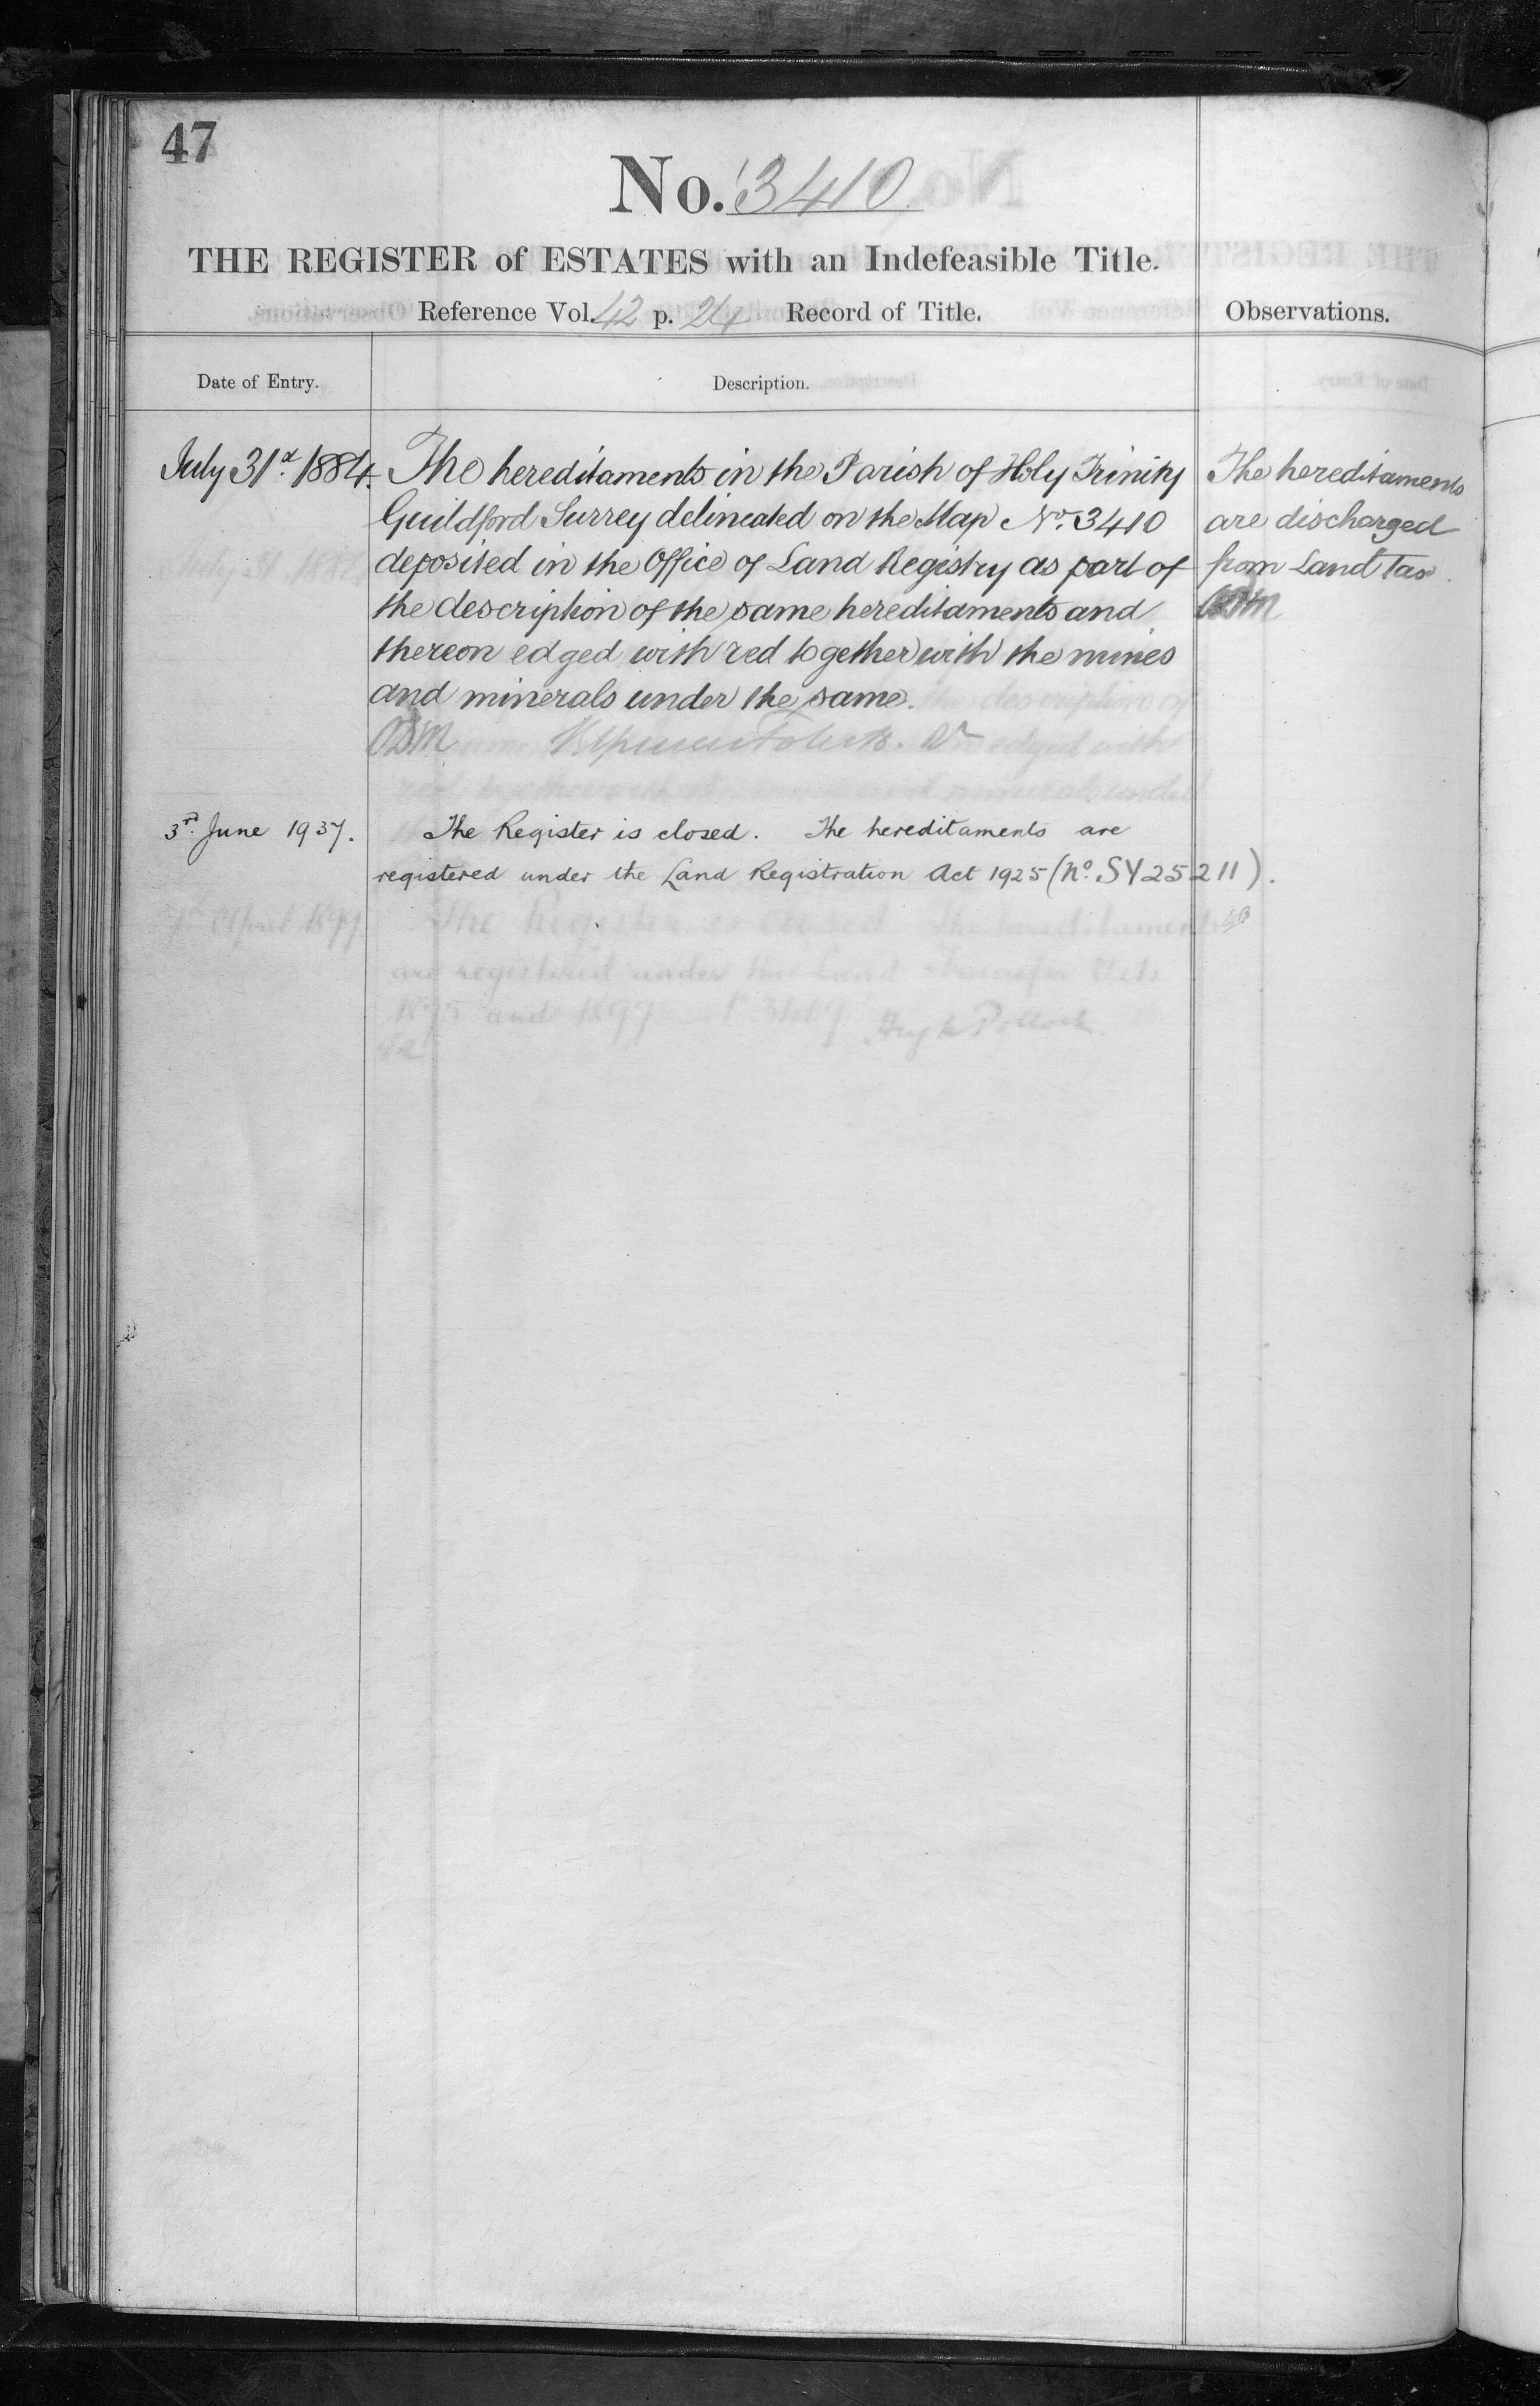 47
No. 3410.
THE REGISTER of ESTATES with an Indefeasible Title.
Reference Vol. 42 p. 24 Record of Title.
Observations.
Date of Entry.
Description.
July 31st 1884.
The hereditaments in the Parish of Holy Trinity
Guildford Surrey delineated on the Map No. 3410
deposited in the Office of Land Registry as part of
the description of the same hereditaments and
thereon edged with red together with the mines
and minerals under the same.
The hereditaments
are discharged
from Land Tax.
3rd. June 1937.
The Register is closed. The hereditaments are
registered under the Land Registration Act 1925 (No. SY25211).